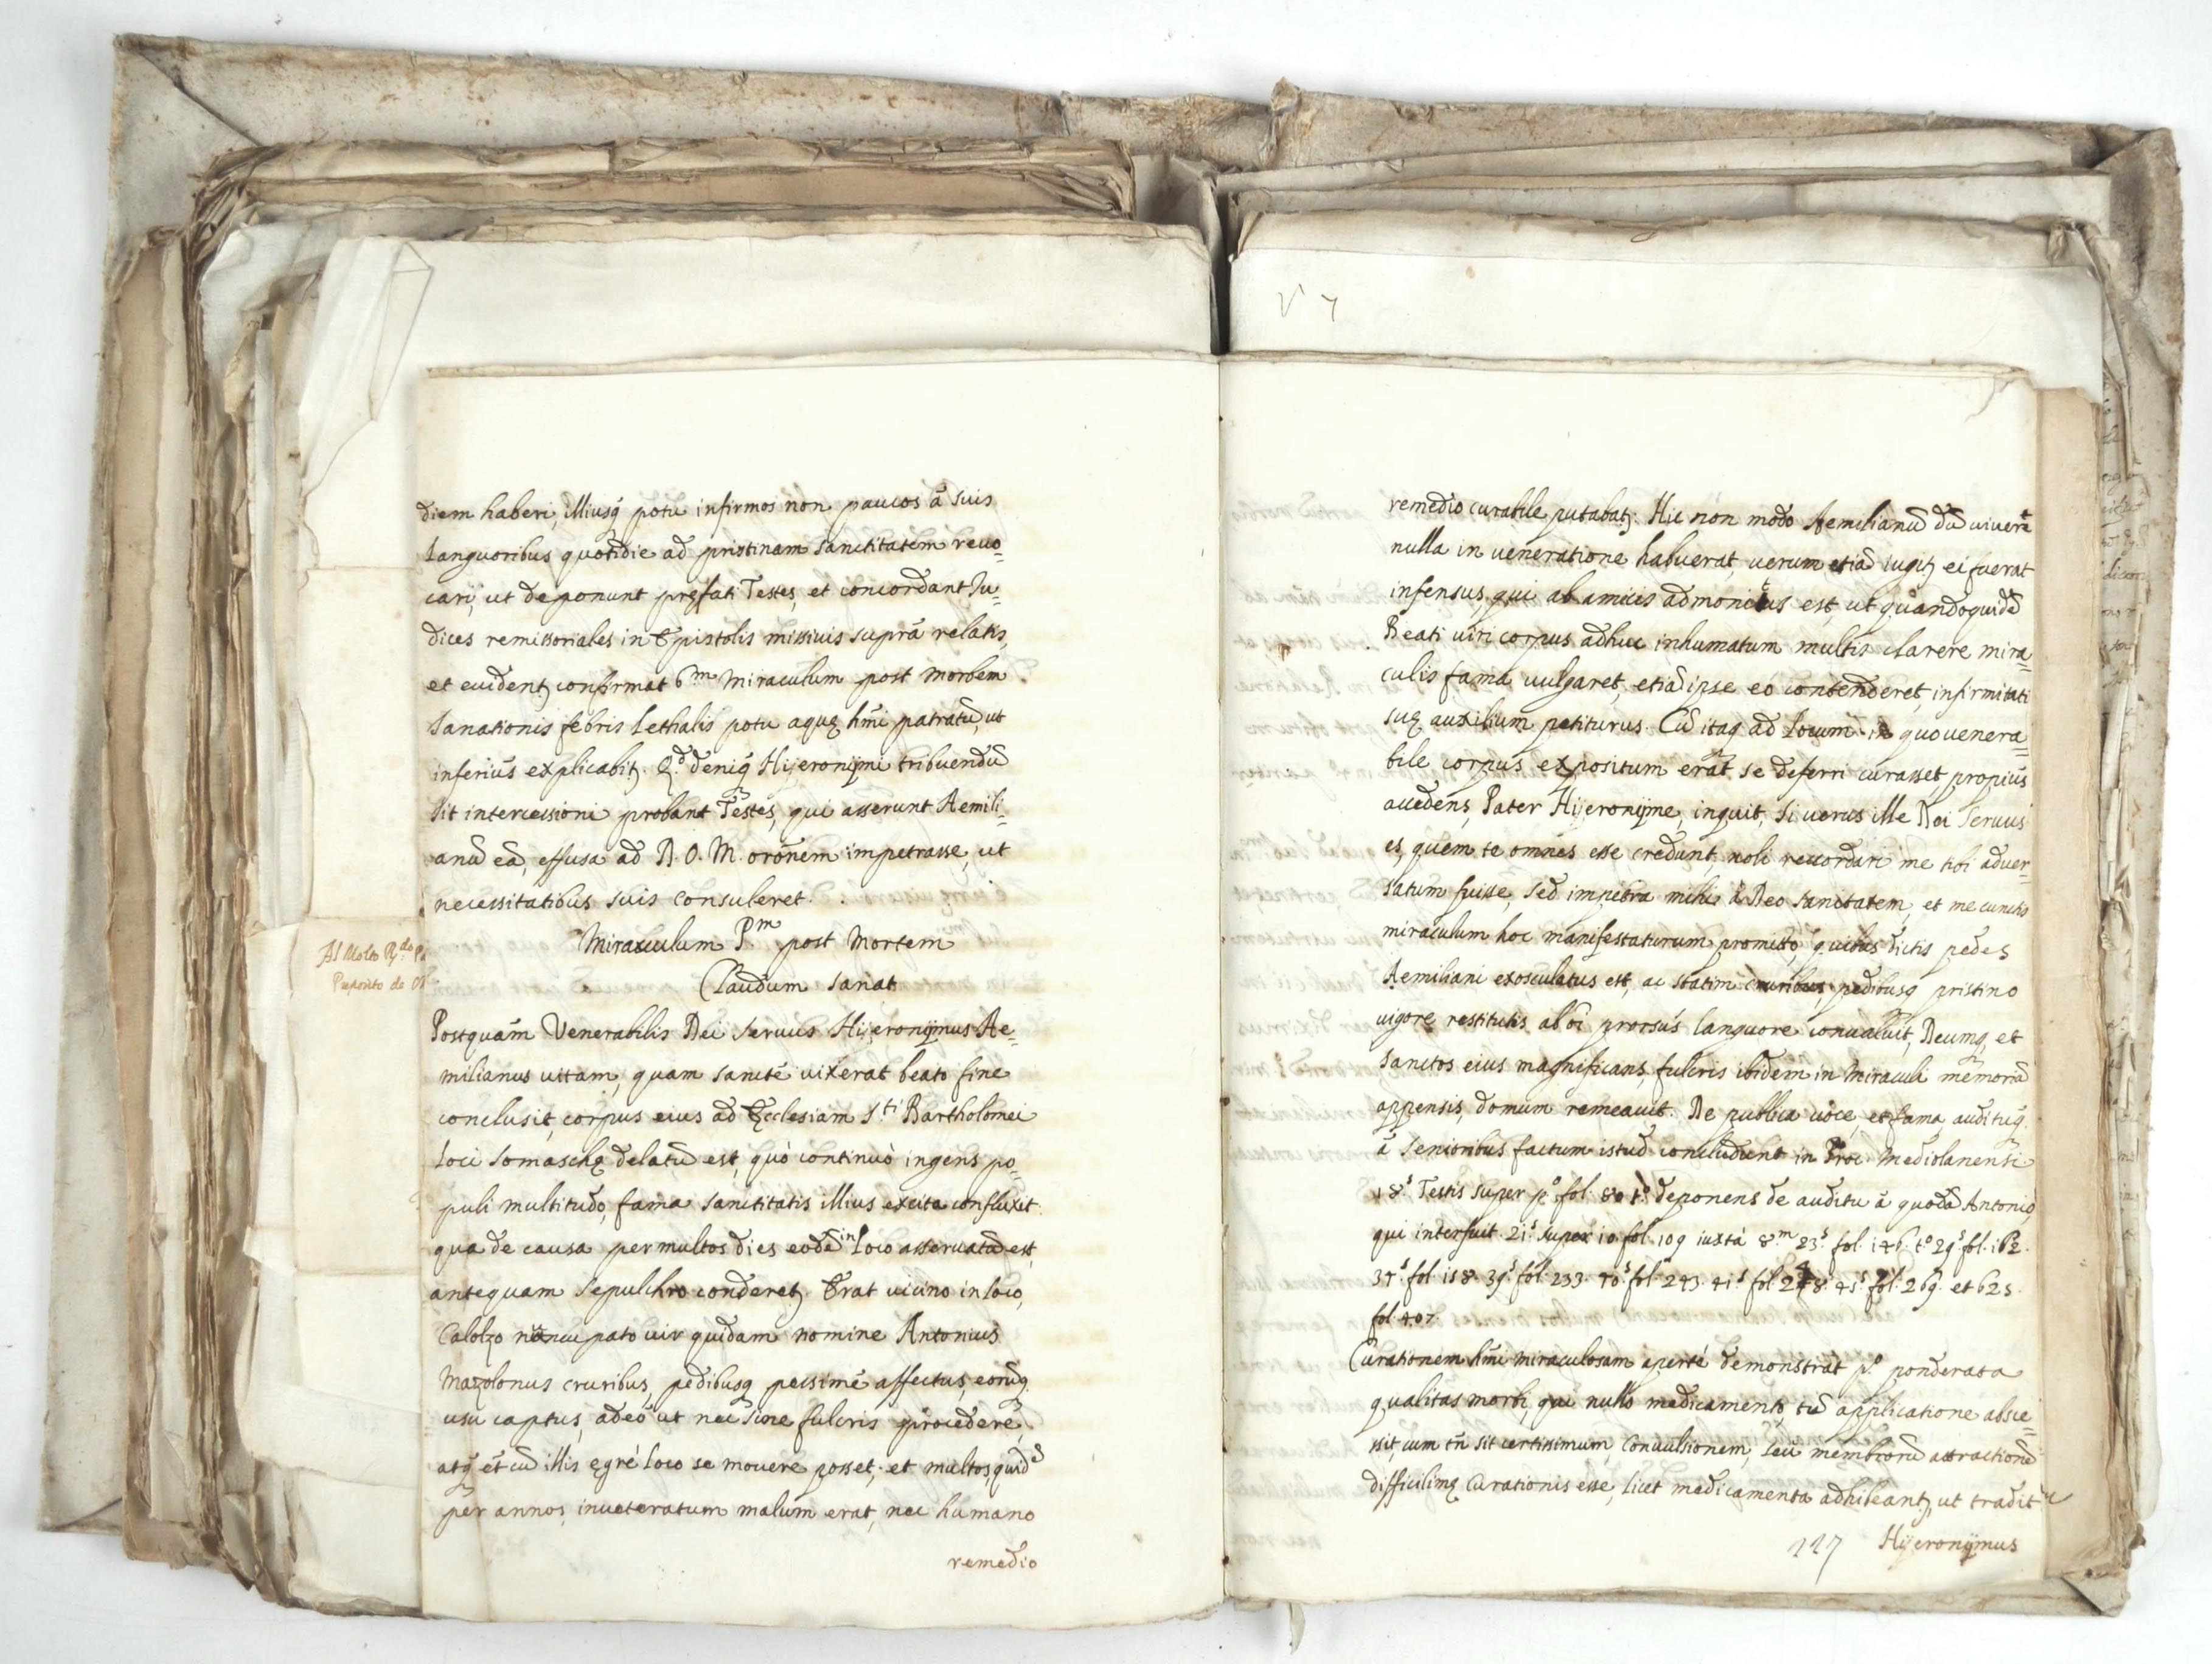 diem haberi, illiusq potu infirmos non paucos à suis
languoribus quotidie ad pristinam sanctitatem reuo=
cari, ut deponunt pręfati Testes, et concordant Ju=
dices remissoriales in Epistolis missiuis suprà relatis,
et euident confirmat 6.m miraculum post mortem
sanationis febris lethalis potu aquę hm̄i patratū, ut
inferius explicabit. Q.d deniq Hijeronijmi tribuendū
sit intercessioni probant Testes, qui asserunt Aemili=
anū eā, effusa ad D. O. M. orōnem impetrasse, ut
necessitatibus suis consuleret.
Miraculum P.m post Mortem
Claudum sanat
Postquàm Venerabilis Dei seruus Hijeronijmus Ae=
milianus uitam, quam sanctè uixerat beato fine
conclusit, corpus eius ad Ecclesiam S.ti Bartholomei
loci Somaschę delatū est, quò continuò ingens po=
puli multitudo, fama sanctitatis illius excita confluxit:
qua de causa per multos dies eodē in loco asseruatū est,
antequam sepulchro conderet. Erat uicino in loco,
Calolzo nūncupato uir quidam nomine Antonius
Mazolonus cruribus, pedibusq pessimè affectus, eorūq
usu captus, adeò ut nec sine fulcris procedere,
atq et cū illis ęgrè loco se mouere posset; et multos quidē
per annos, inueteratum malum erat, nec humano
remedio
Al Molto R.do P
Preposito de
V 7
remedio curabile putabat. Hic non modo Aemilianū dū uiueret
nulla in ueneratione habuerat, uerum etiā iugit ei fuerat
infensus, qui ab amicis admonitus est, ut quandoquidē
Beati uiri corpus adhuc inhumatum multis clarere mira=
culis fama uulgaret, etiā ipse eò contenderet, infirmitati
suę auxilium petiturus. Cū itaq ad locum in quo uenera=
bile corpus expositum erat se deferri curasset, propius
accedens, Pater Hijeronijme, inquit, si uerus ille Dei Seruus
es, quem te omnes esse credunt, noli recordari me tibi aduer=
satum fuisse, sed impetra mihi à Deo sanitatem, et me cunctis
miraculum hoc manifestaturum promitto, quibus dictis pedes
Aemiliani exosculatus est, ac statim cruribus, pedibusq pristino
uigore restitutis ab oī prorsus languore conualuit, Deumq, et
sanctos eius magnificans, fulcris ibidem in miraculi memoriā
appensis, domum remeauit. De publica uoce, et fama, audituq
à senioribus factum istud concludunt in Proc. Mediolanensi
18.s Testis super p.o fol. 80 t.o deponens de auditu à quodā Antonio,
qui interfuit. 21.s super 10 fol. 109 iuxtà 8.m 23.s fol. 146. t.o 29.s fol. 182.
37.s fol. 158. 39.s fol. 233. 40.s fol. 243. 41.s fol. 248. 45.s fol. 269. et 62s.
fol. 407.
Curationem hm̄i miraculosam apertè demonstrat p.o ponderata
qualitas morbi, qui nullo medicamento, tū applicatione absce=
ssit, cum tn̄ sit certissimum, Conuulsionem, seù membrorū attractionē
difficilimę Curationis esse, licet medicamenta adhibeant, ut tradit
117 Hijeronijmus